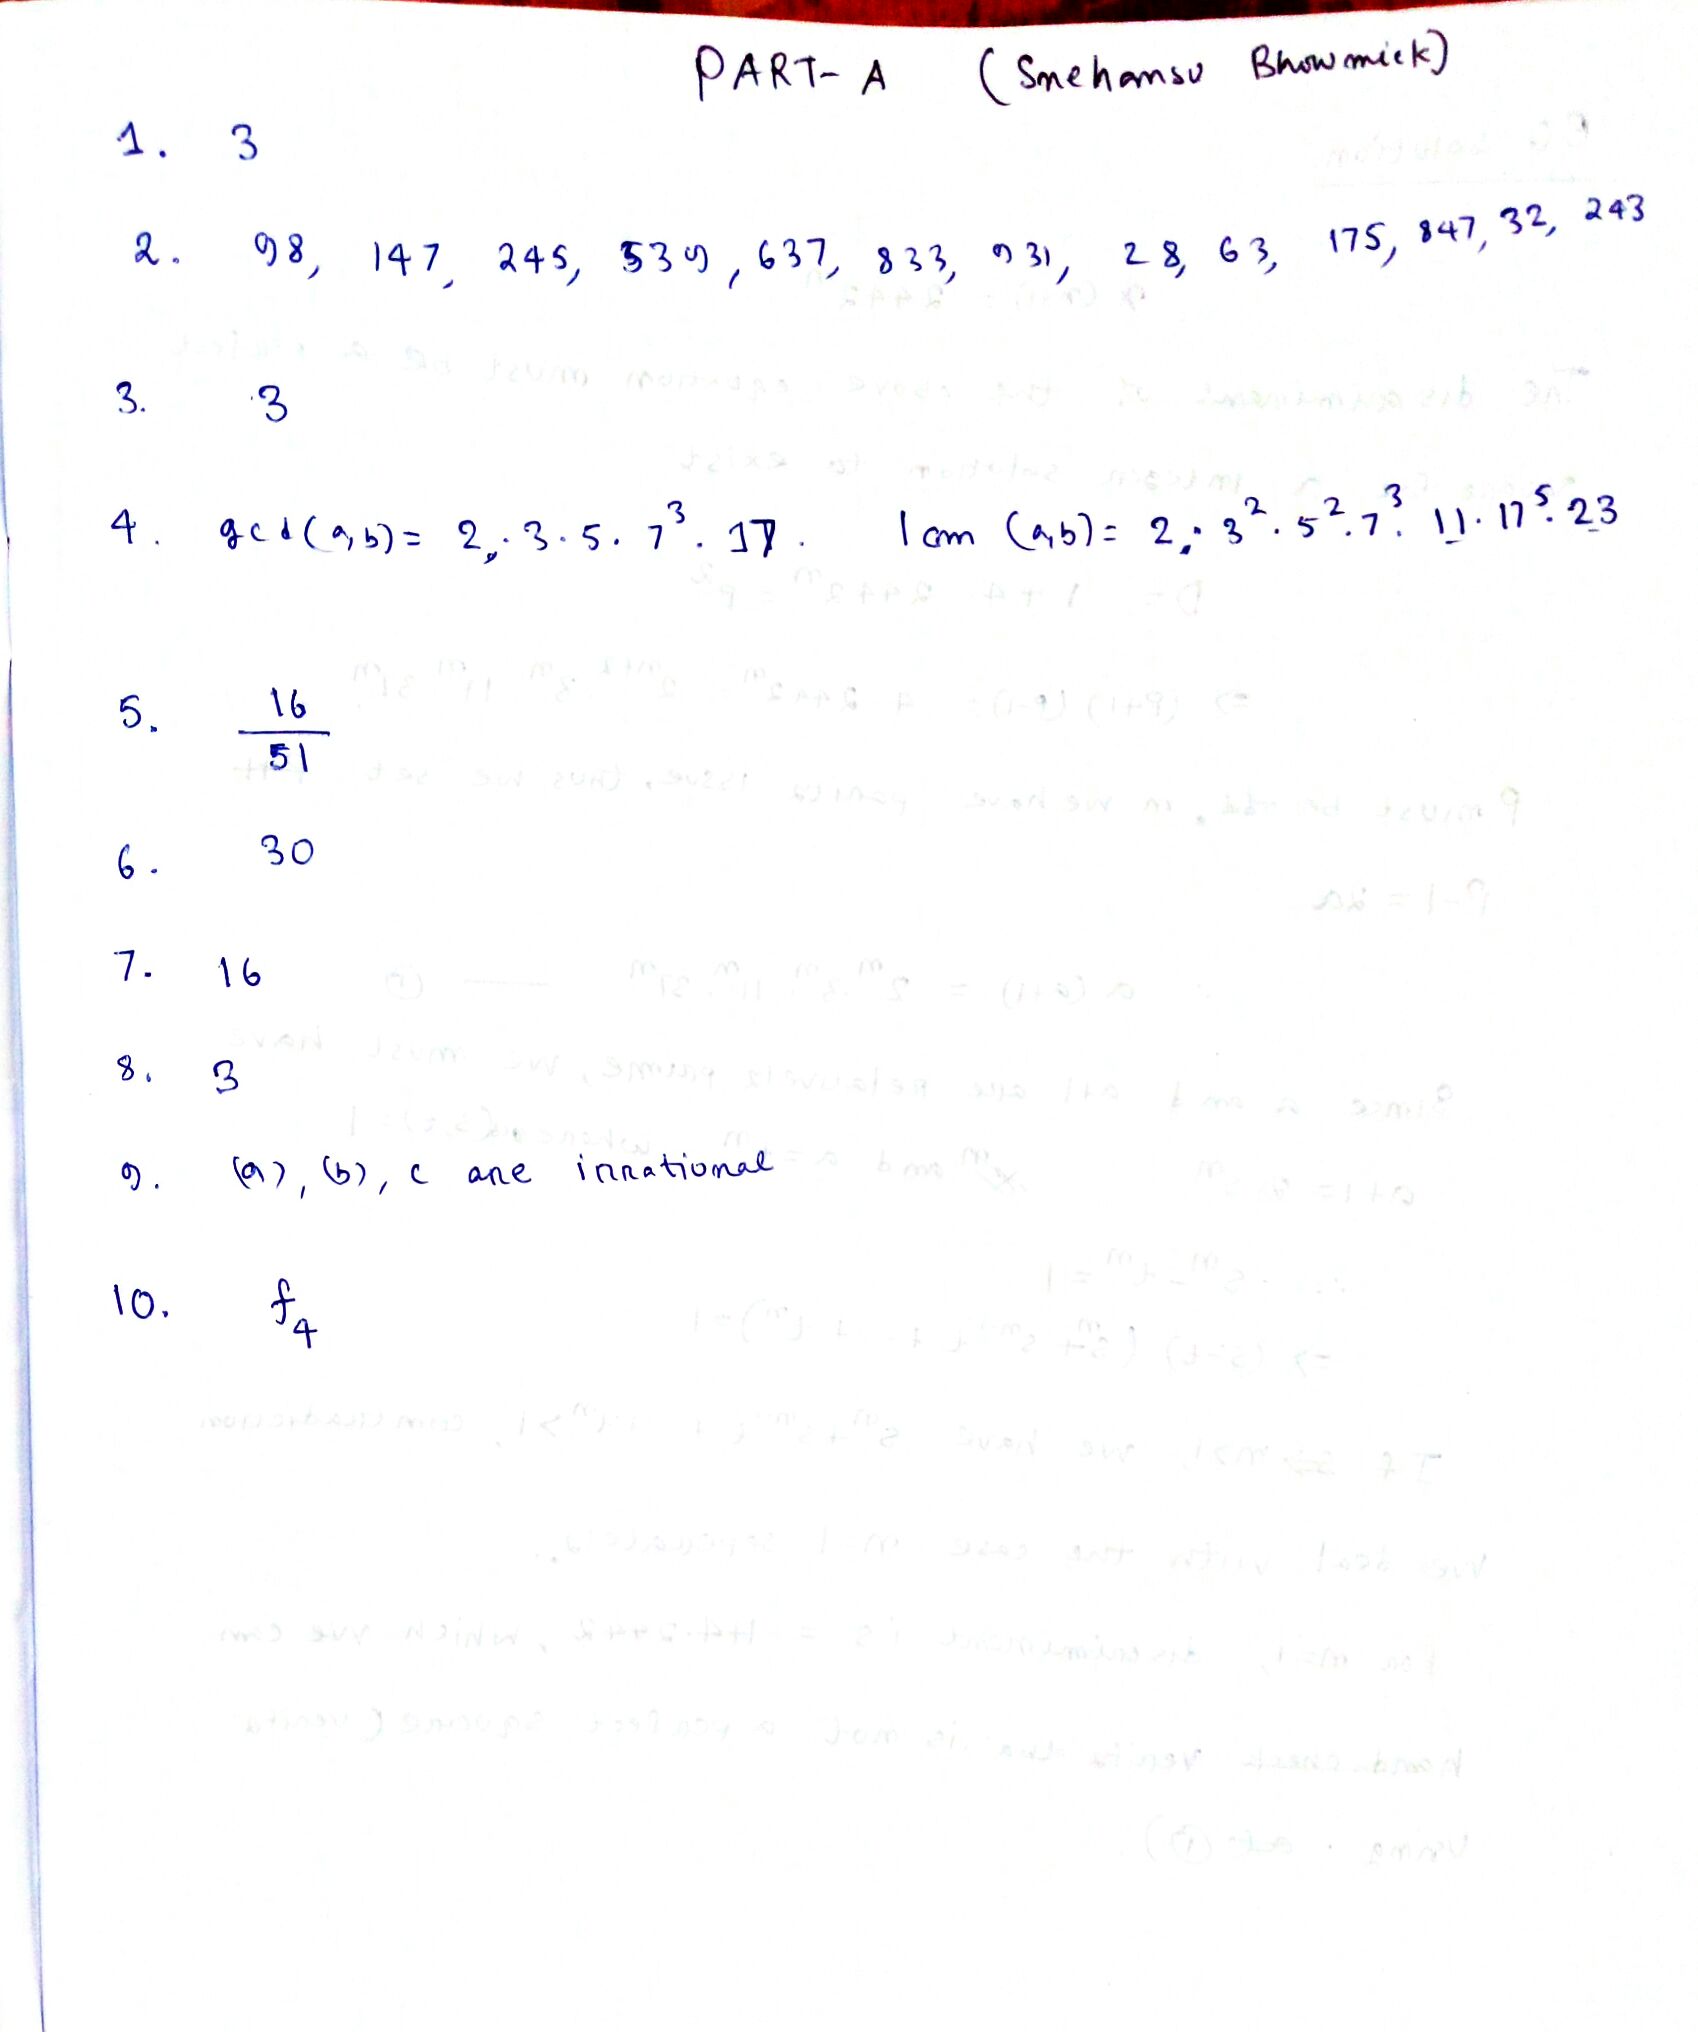 PART- A (Snehansu Bhowmick)
1. 3
2. 98, 147, 245, 539, 637, 833, 931, 28, 63, 175, 847, 32, 243
3. 3
4. gcd(a,b)= 2.3.5.7³.17. lcm (a,b)= 2.3².5².7³.11.17⁵.23
5. 16/51
6. 30
7. 16
8. 3
9. (a), (b), c are irrational
10. f₄